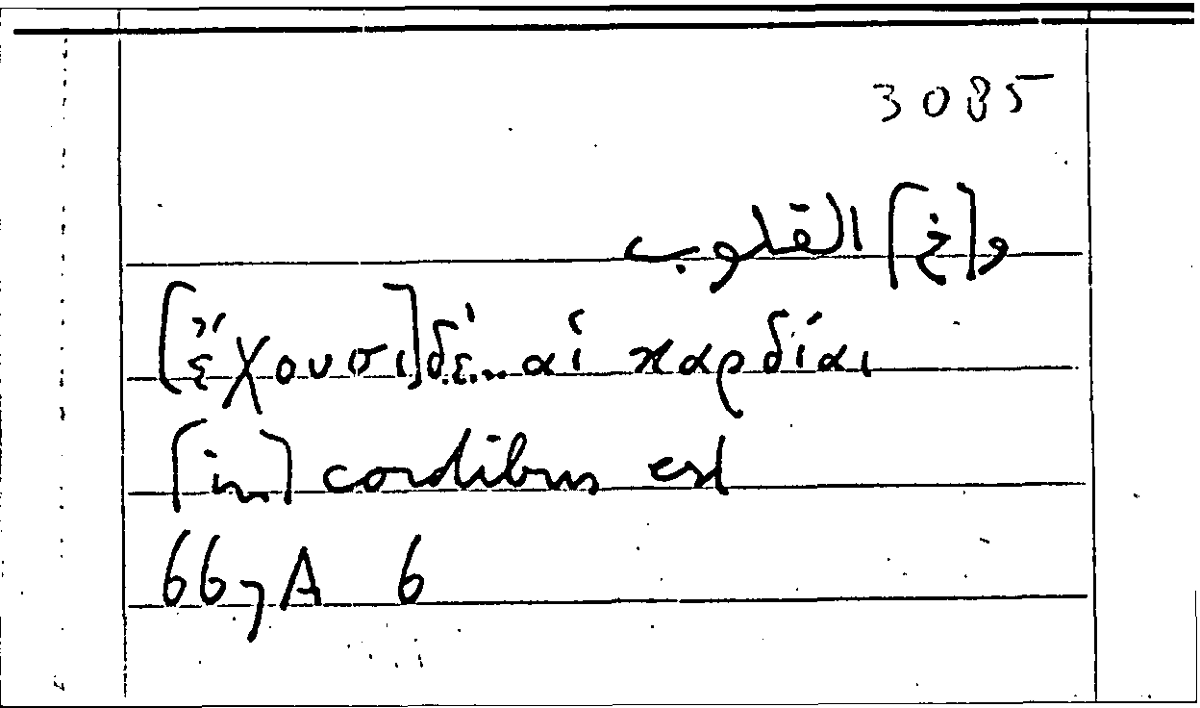 3085
و[في] القلوب
[ἔχουσι] δὲ... αἱ καρδίαι
[in] cordibus est
667A 6